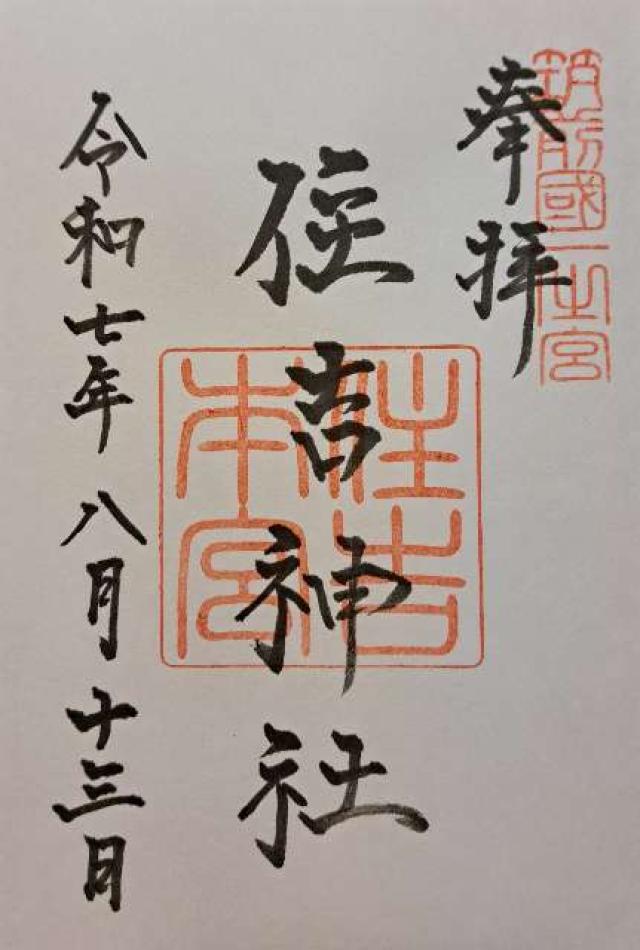 筑前國一之宮
奉拝
住吉神社
住吉本宮
令和七年八月十三日